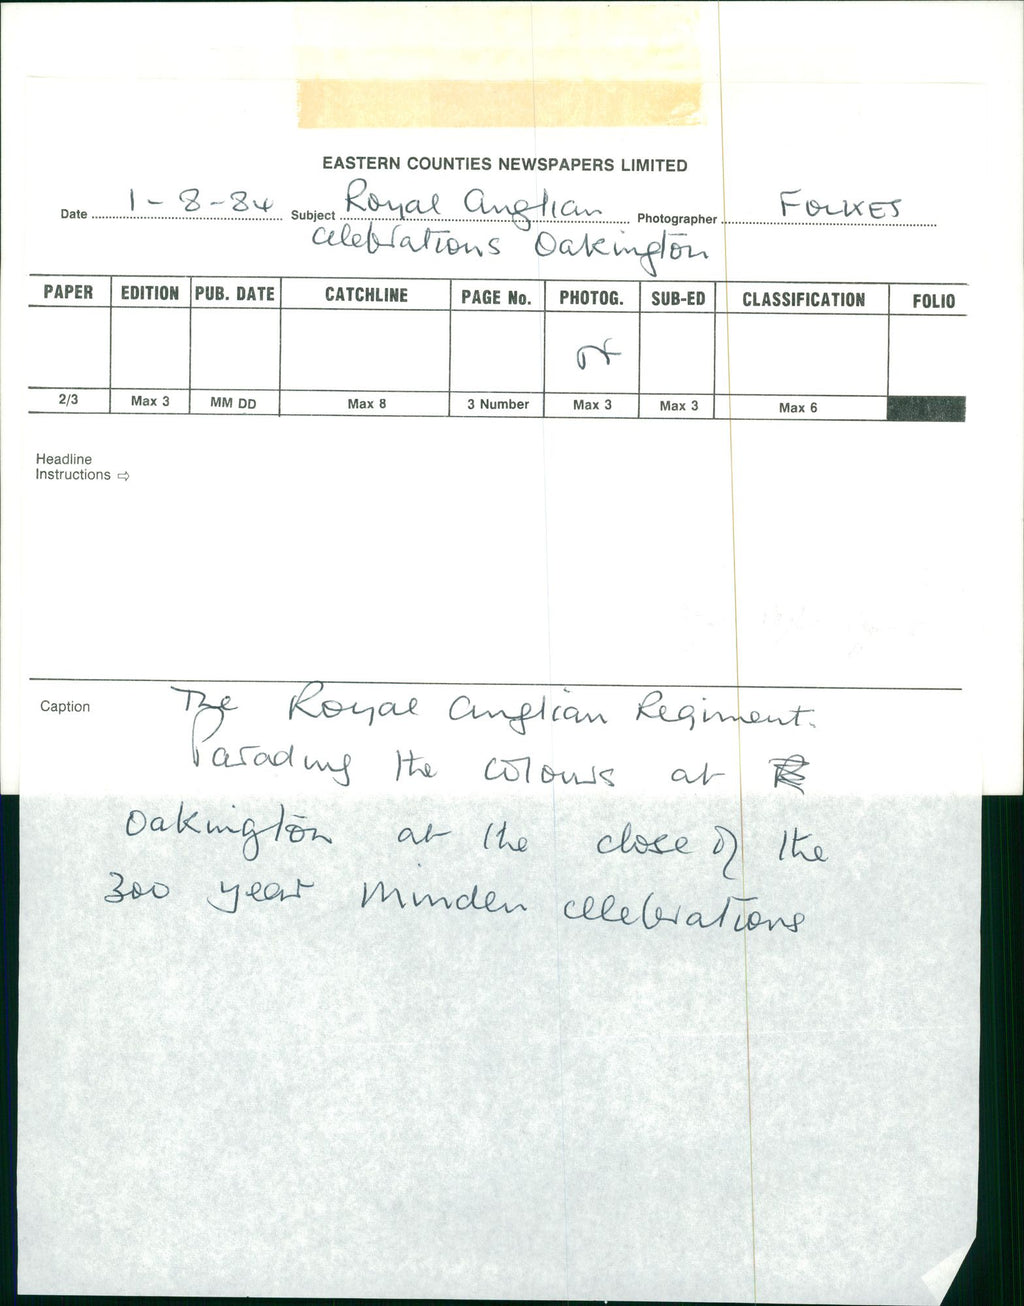 EASTERN COUNTIES NEWSPAPERS LIMITED
Date 1-8-84 Subject Royal Anglian Photographer FOLKES
celebrations Oakington
PAPER EDITION PUB. DATE CATCHLINE PAGE No. PHOTOG. SUB-ED CLASSIFICATION FOLIO
2/3 Max 3 MM DD Max 8 3 Number Max 3 Max 3 Max 6
Headline
Instructions ⇨
Caption The Royal Anglian Regiment.
Parading the colours at
Oakington at the close of the
300 year Minden celebrations